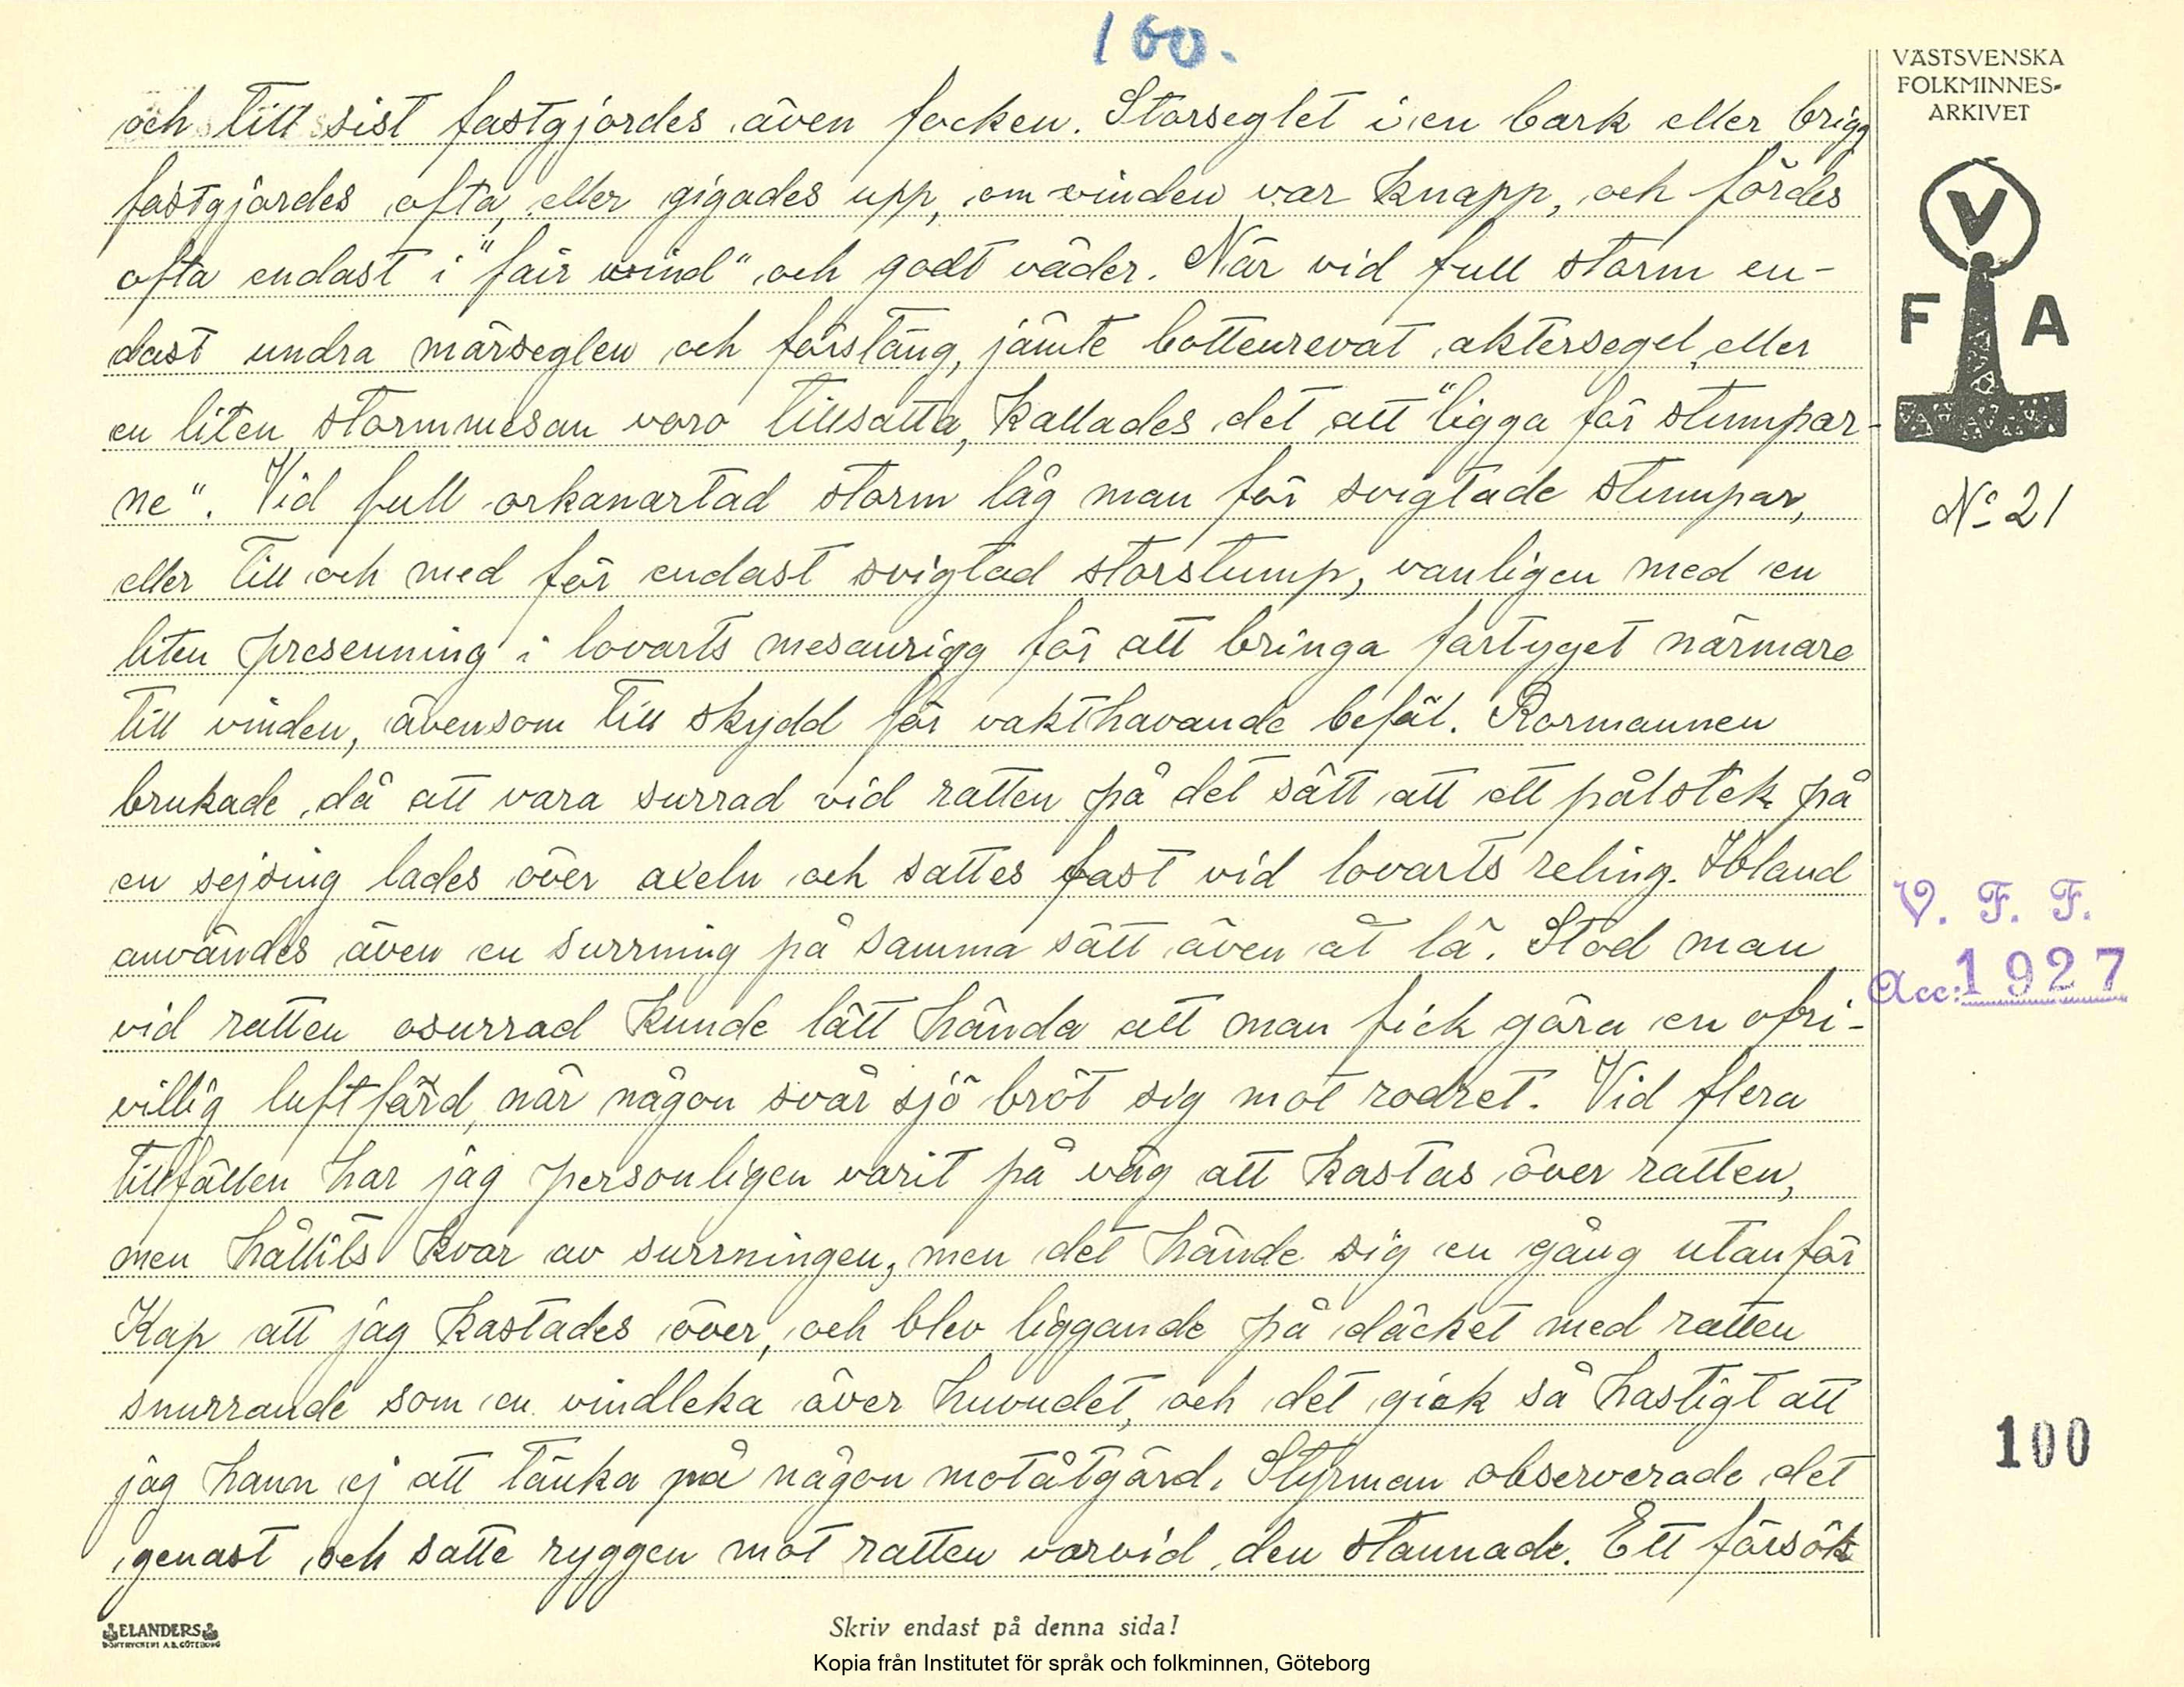 100.
och till sist fastgjordes även focken. Storseglet i en bark eller brigg
fastgjordes ofta, eller gigades upp, om vinden var knapp, och fördes
ofta endast i "fair wind" och godt väder. När vid full storm en-
dast undra märseglen och förstäng, jämte bottenrevat aktersegel, eller
en liten stormmesan voro tillsatta, kallades det att "ligga för stumpar-
ne". Vid full orkanartad storm låg man för svigtade stumpar,
eller till och med för endast svigtad storstump, vanligen med en
liten presenning i lovarts mesanrigg för att bringa fartyget närmare
till vinden, ävensom till skydd för vakthavande befäl. Rormannen
brukade då att vara surrad vid ratten på det sätt att ett pålstek på
en sejsing lades över axeln och sattes fast vid lovarts reling. Ibland
användes även en surrning på samma sätt även åt lä. Stod man
vid ratten osurrad kunde lätt hända att man fick göra en ofri-
villig luftfärd, när någon svår sjö bröt sig mot rodret. Vid flera
tillfällen har jag personligen varit på väg att kastas över ratten,
men hållits kvar av surrningen, men det hände sig en gång utanför
Kap att jag kastades över, och blev liggande på däcket med ratten
snurrande som en vindleka över huvudet, och det gick så hastigt att
jag hann ej att tänka på någon motåtgärd. Styrman observerade det
genast och satte ryggen mot ratten varvid den stannade. Ett försök
VÄSTSVENSKA
FOLKMINNES-
ARKIVET
V
F A
No 21
V. F. F.
Acc: 1927
100
ELANDERS
BOKTRYCKERI A.B. GÖTEBORG
Skriv endast på denna sida!
Kopia från Institutet för språk och folkminnen, Göteborg